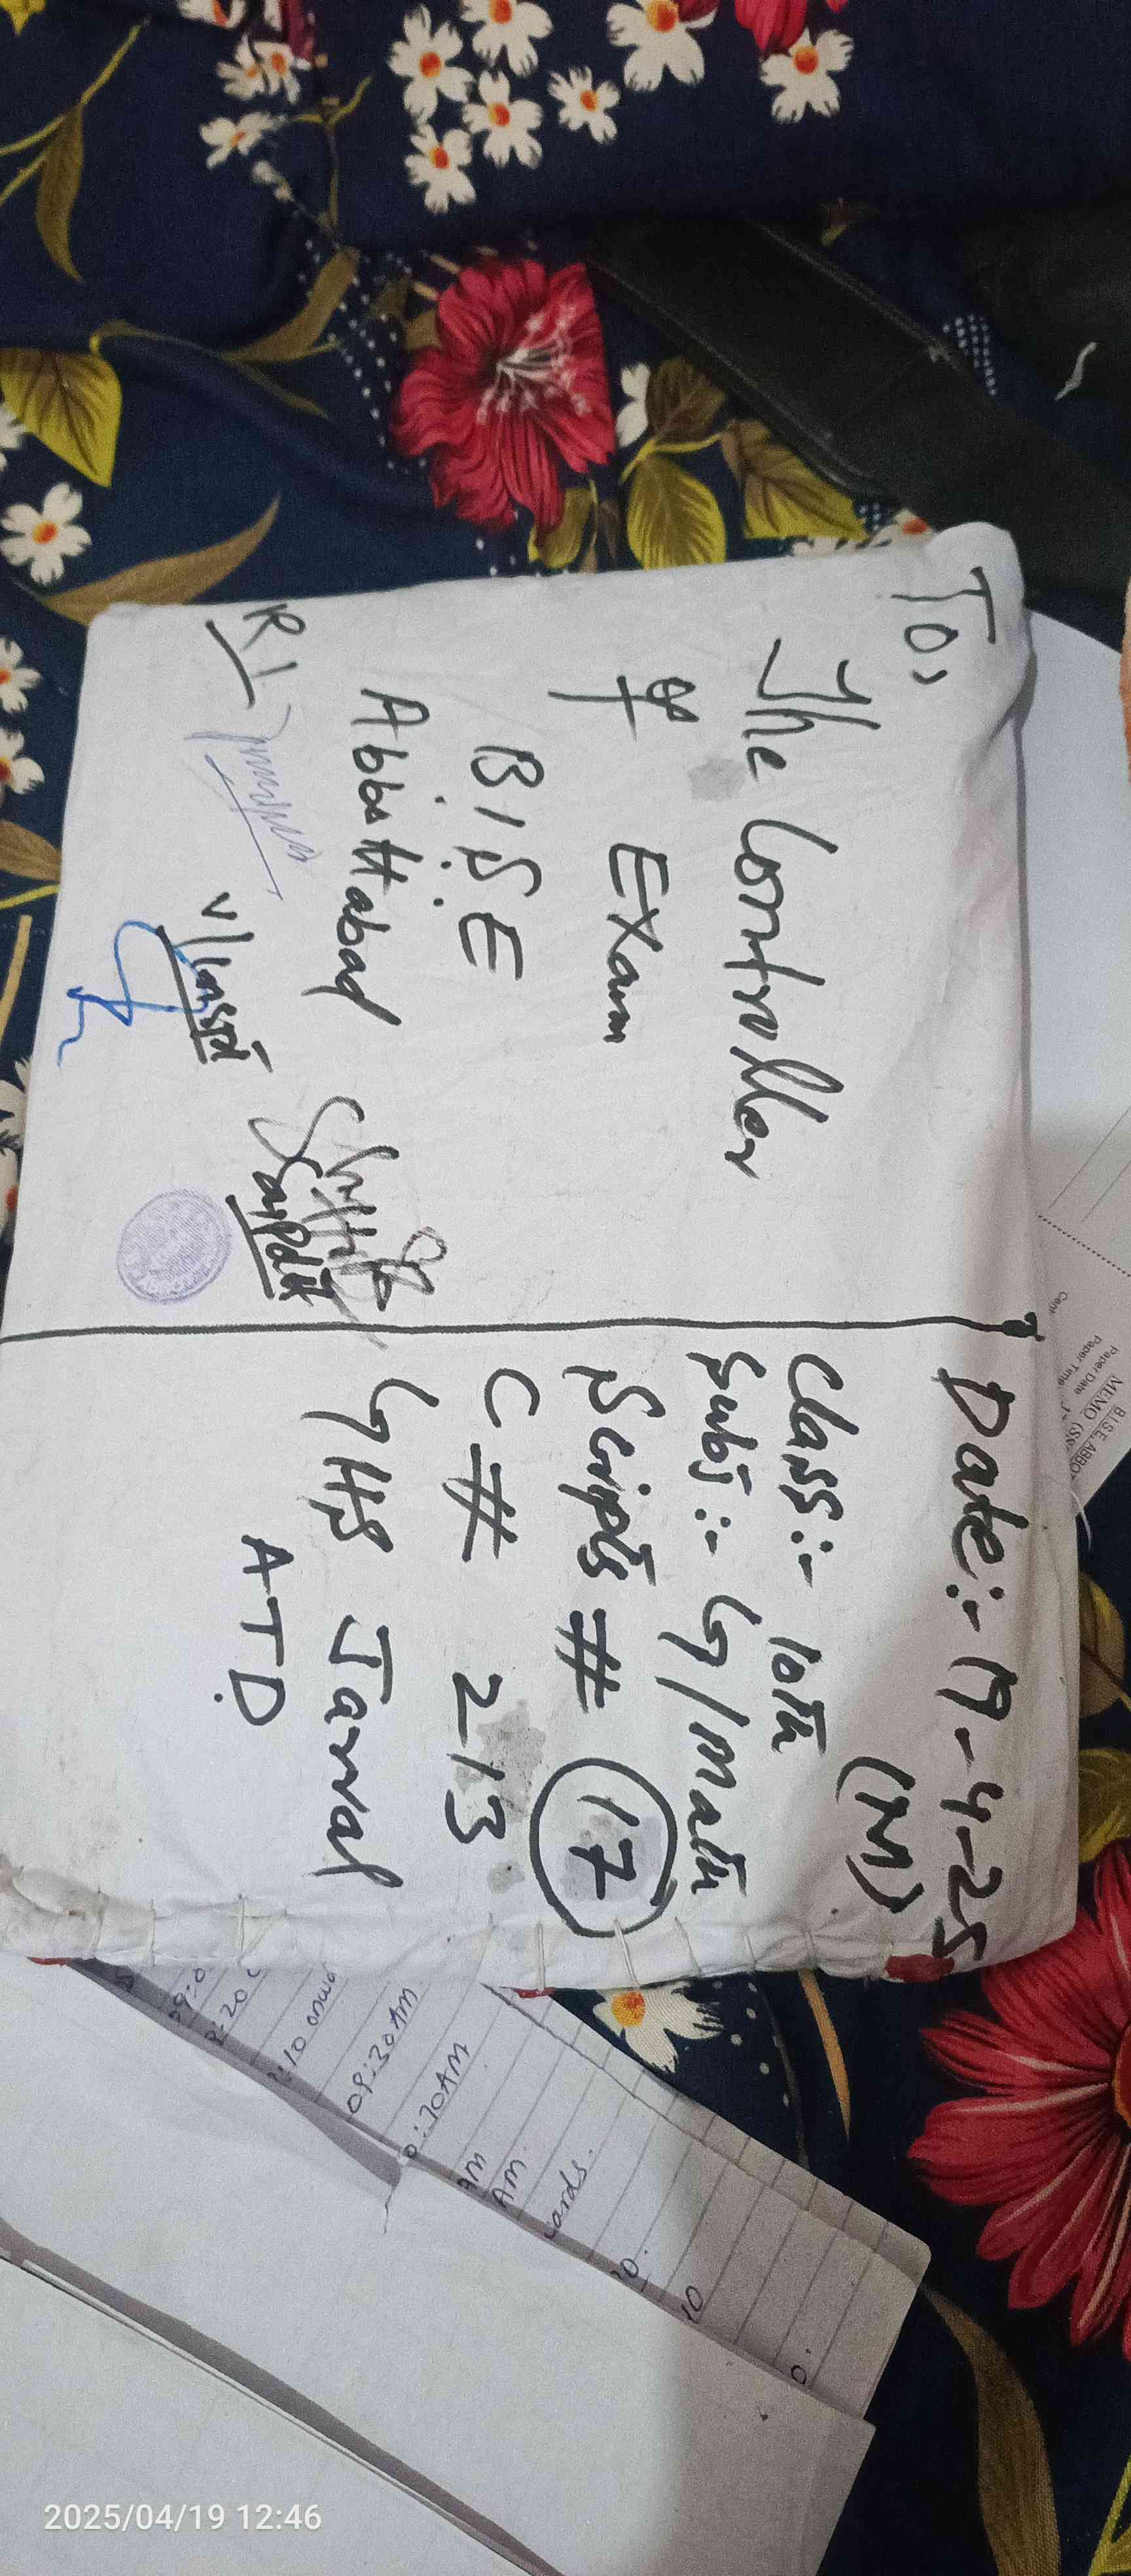 To,
The Controller
of Exam
B.I.S.E
Abbottabad
R I
V/Inspt
Supdtt
Date:- 19-4-25
(M)
Class:- 10th
Subj:- G/Math
Scripts # 17
C # 213
GHS Jarral
ATD
B.I.S.E, ABBO
MEMO (SS
Paper Date
Paper Time
Cent
:10 onwar
09:30AM
0:30AM
AM
AM.
wards.
10.
10
2025/04/19 12:46